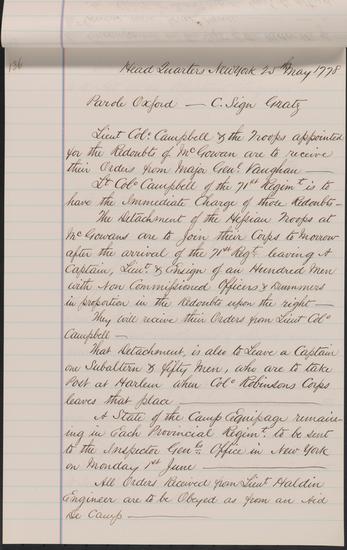 136
Head Quarters New York 25th May 1778
Parole Oxford — C. Sign Gratz
Lieut Colo. Campbell & the Troops appointed
for the Redoubts of McGowan are to receive
their Orders from Major Genl. Vaughan —
Lt. Colo Campbell of the 71st Regimt is to
have the Immediate Charge of those Redoubts —
The Detachment of the Hessian Troops at
McGowans are to Join their Corps to Morrow
after the arrival of the 71st Regt. leaving A
Captain, Lieut. & Ensign of an Hundred Men
with Non Commissioned Officers & Drummers
in proportion in the Redoubts upon the right —
They will receive their Orders from Lieut Colo
Campbell —
That Detachment, is also to Leave a Captain
one Subaltern & fifty Men, who are to take
Post at Harlem when Colo. Robinsons Corps
leaves that place —
A State of the Camp Equipage remain-
ing in Each Provincial Regimt. to be sent
to the Inspector Genls. Office in New York
on Monday 1st June —
All Orders Received from Lieut Haldin
Engineer are to be Obeyed as from an Aid
De Camp —